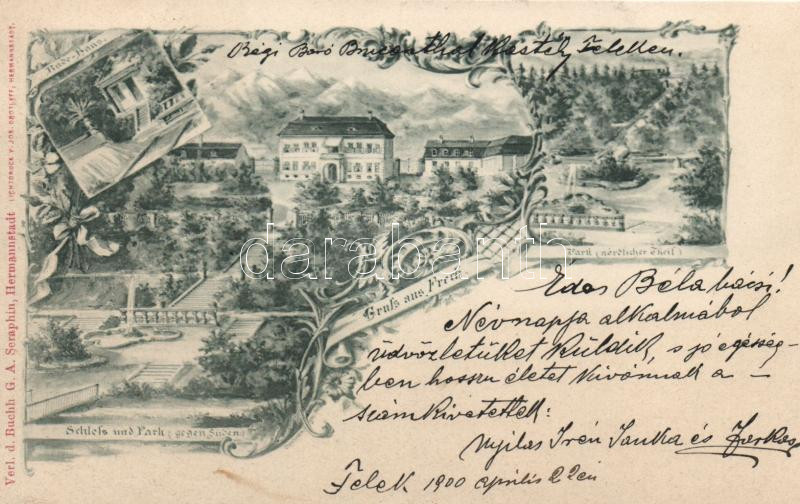 Régi Báró Bruckenthal Kastély Feleken.
Bade-Haus.
Park (nördlicher Theil)
Gruss aus Freck
darabanth
Édes Béla bácsi!
Névnapja alkalmából
üdvözletüket küldik, s jó egésség-
ben hosszu életet kivánnak a
számkivetettek:
Nyilas Irén Janka és Farkas
Felek 1900 április 22én
Schloss und Park (gegen Süden)
Verl. d. Buchh. G. A. Seraphin, Hermannstadt
LICHTDRUCK V. JOS. DROTLEFF, HERMANNSTADT.